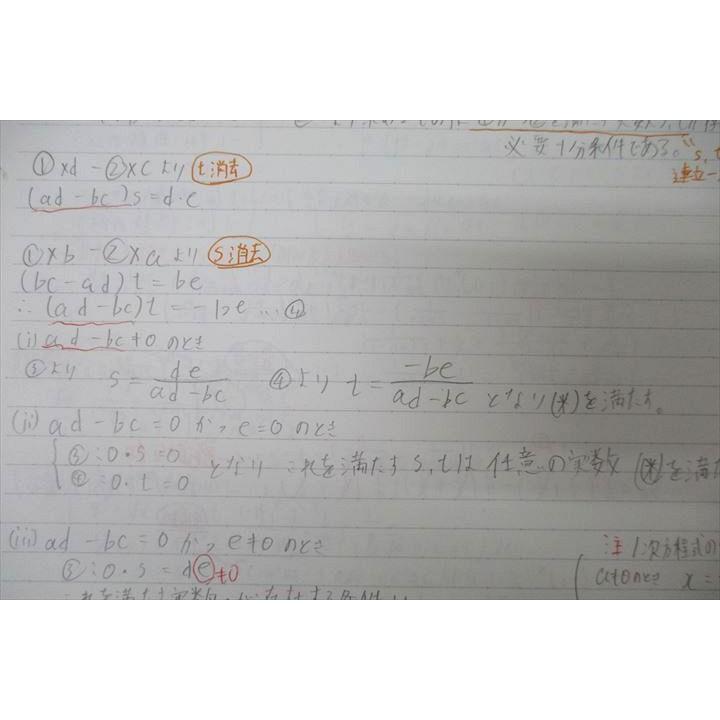 必要十分条件である。
s, t
連立一
①×d － ②×c より t消去
(ad－bc)s＝d・e
①×b － ②×a より s消去
(bc－ad)t＝be
∴(ad－bc)t＝－be …④
(i) ad－bc≠0 のとき
③より s＝de/(ad－bc) ④より t＝－be/(ad－bc) となり(*)を満たす。
(ii) ad－bc＝0 かつ e＝0 のとき
③：0・s＝0
④：0・t＝0 となり これを満たす s, tは 任意の実数 (*)を満た
(iii) ad－bc＝0 かつ e≠0 のとき
注 1次方程式の
③：0・s＝de≠0
a≠0のとき x＝